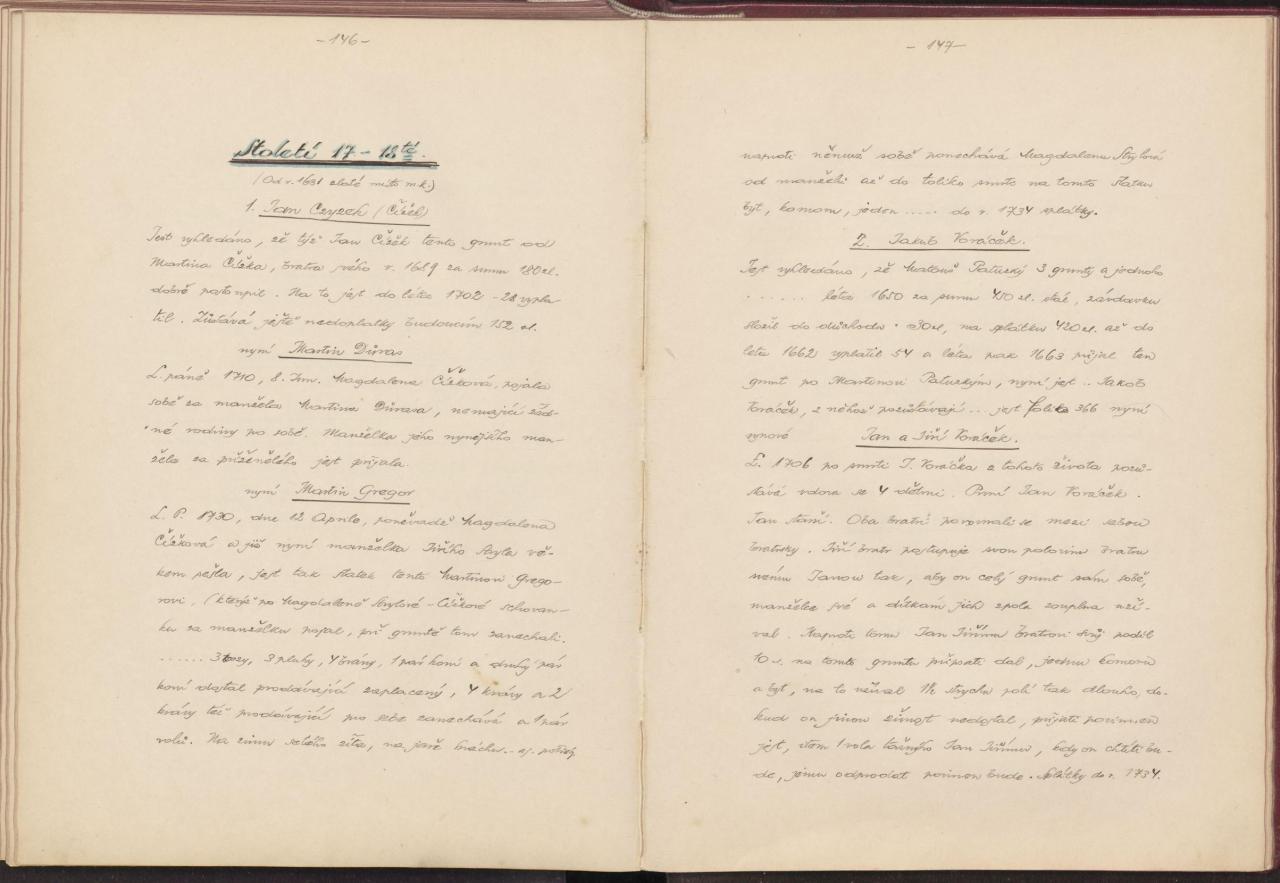 -146-
Století 17 - 18té.
(Od r. 1631 zlaté místo m.k.)
1. Jan Czyzek (Čížek)
Jest vyhledáno, žě týž Jan Čížěk tento grunt od
Martina Čížka, bratra svého r. 1689 za sumu 180 zl.
dobrě postoupil. Na to jest do léta 1702 - 28 vypla-
til. Zůstává ještě nedoplatky budoucím 152 zl.
nyní Martin Důras
L. páně 1710, 8. Jan. Magdalena Čížková, pojala
sobě za manžela Martina Důrasa, nemající žád-
né rodiny po sobě. Manželka jeho nynějšího man-
žela za přiženělého jest přijala.
nyní Martin Gregor
L. P. 1730, dne 12 Aprile, poněvadž Magdalena
Čížková a již nyní manželka Jiřího Stryla vě-
kem sešla, jest tak statek tento Martinovi Grego-
rovi, (kterýž po Magdaleně Strylové - Čížkové schovan-
ku za manželku pojal, při gruntě tom zanechali.
...... 3 vozy, 3 pluhy, 4 brány, 1 pár koní a druhý pár
koní dostal prodávající zaplacený, 4 krávy a 2
krávy též prodávající pro sebe zanechává a 1 pár
volů. Na zimu setého žita, na jaře hrachu
-147-
naproti němuž sobě ponechává Magdalena Strylová
od manžela až do toliko smrti na tomto statku
byt, komoru, jeden ..... do r. 1734 splátky.
2. Jakub Voráček.
Jest vyhledáno, žě Matouš Patuzký 3 grunty a jednoho
...... léta 1650 za sumu 450 zl. stál, závdavku
složil do důchodu 30 zl, na splátku 420 zl. až do
léta 1662 vyplatil 54 a léta pak 1663 přijal ten
grunt po Martinovi Patuzkým, nyní jest .. Jakub
Voráček, z něhož pozůstávají ... jest folik 366 nyní
synové Jan a Jiří Voráček.
L. 1706 po smrti J. Voráčka z tohoto života pozů-
stává vdova se 4 dětmi. První Jan Voráček.
Jan starší. Oba bratři porovnali se mezi sebou
bratrsky. Jiří bratr postupuje svou polovinu bratru
svému Janovi tak, aby on celý grunt sám sobě,
manželce své a dítkám jich zpola zouplna uží-
val. Naproti tomu Jan Jiřímu bratrovi svůj podíl
10 zl. na tomto gruntu připsati dal, jednu komoru
a byt, na to užíval 1½ strychu polí tak dlouho, do-
kud on jinou živnost nedostal, přijati povinnen
jest, vtom 1 vola tažného Jan Jiřímu, kdy on chtíti bu-
de, jemu odprodat povinen bude. Splátky do r. 1734.